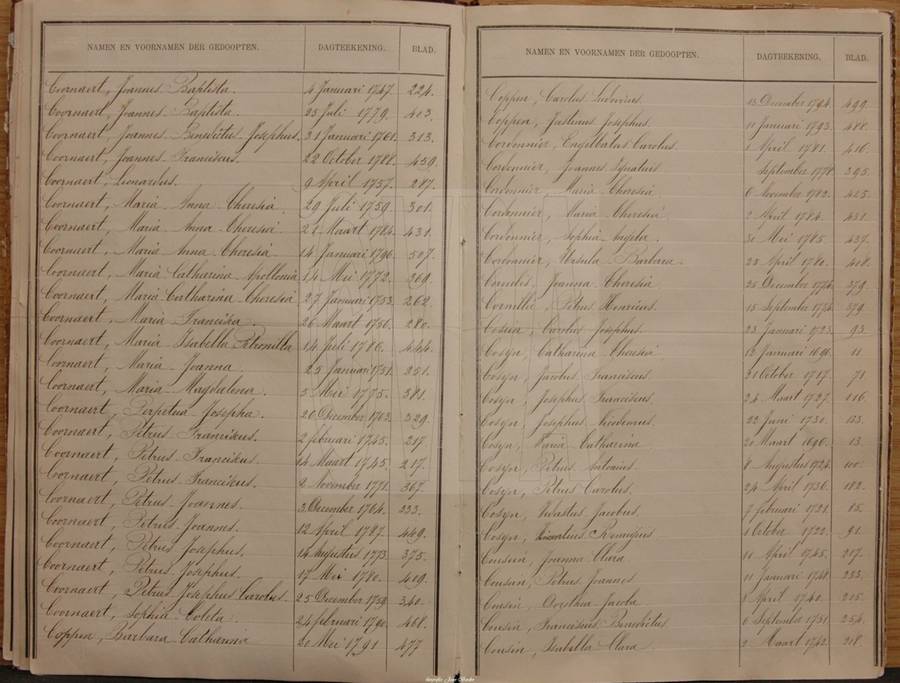 NAMEN EN VOORNAMEN DER GEDOOPTEN. DAGTEEKENING. BLAD.
Coornaert, Joannes Baptista. 4 Januari 1747. 224.
Coornaert, Joannes Baptista. 25 Juli 1779. 403.
Coornaert, Joannes Benedictus Josephus. 31 Januari 1761. 313.
Coornaert, Joannes Franciscus. 22 October 1788. 459.
Coornaert, Leonardus. 9 April 1757. 287.
Coornaert, Maria Anna Theresia. 29 Juli 1759. 301.
Coornaert, Maria Anna Theresia. 21 Maart 1784. 431.
Coornaert, Maria Anna Theresia 14 Januari 1796. 507.
Coornaert, Maria Catharina Apollonia 14 Mei 1772. 369.
Coornaert, Maria Catharina Theresia 27 Januari 1753. 262.
Coornaert, Maria Franciska. 26 Maart 1756. 280.
Coornaert, Maria Isabella Petronilla 14 Juli 1786. 444.
Coornaert, Maria Joanna. 25 Januari 1751. 251.
Coornaert, Maria Magdalena. 5 Mei 1775. 381.
Coornaert, Perpetua Josepha. 20 December 1762. 329.
Coornaert, Petrus Franciskus. 2 februari 1745. 217.
Coornaert, Petrus Franciskus. 14 Maart 1745. 217.
Coornaert, Petrus Franciskus. November 1771. 367.
Coornaert, Petrus Joannes. 3 December 1764. 333.
Coornaert, Petrus Joannes. 12 April 1787. 449.
Coornaert, Petrus Josephus. 14 Augustus 1773. 375.
Coornaert, Petrus Josephus. 17 Mei 1780. 409.
Coornaert, Petrus Josephus Carolus. 25 December 1759. 340.
Coornaert, Sophia Coleta. 24 februari 1790. 461.
Coppen, Barbara Catharina 21 Mei 1791 477
NAMEN EN VOORNAMEN DER GEDOOPTEN. DAGTEEKENING. BLAD.
Coppen, Carolus Ludovicus. 15 December 1794. 499.
Coppen, Justinus Josephus. 11 Januari 1793. 488.
Cordonnier, Engelbertus Carolus. 1 April 1781. 416.
Cordonnier, Joannes Ignatius September 1778 395.
Cordonnier, Maria Theresia 6 November 1782. 425.
Cordonnier, Maria Theresia 2 April 1784. 431.
Cordonnier, Sophia Angela. 30 Mei 1785. 437.
Cordonnier, Ursula Barbara. 25 April 1780. 408.
Joanna Theresia 26 December 1774. 379.
Cornillie, Petrus Henricus. 15 September 1774. 379.
Carolus Josephus. 23 Januari 1723. 93
Cosyn, Catharina Theresia 12 Januari 1691. 11
Cosyn, Jacobus Franciscus. 21 October 1717. 71
Cosyn, Josephus Franciscus. 24 Maart 1727. 116
Cosyn, Josephus 22 Juni 1730. 133.
Cosyn, Maria Catharina 20 Maart 1690. 13.
Cosyn, Petrus Antonius. 8 Augustus 1724. 100.
Cosyn, Petrus Carolus. 24 April 1736. 182.
Cosyn, Vedastus Jacobus. 7 februari 1721. 85.
Cosyn, Remigius. 1 October 1722. 91.
Cousin, Joanna Clara. 11 April 1745. 217.
Cousin, Petrus Joannes 11 Januari 1748. 233.
Cousin, Angelina Jacoba 1 April 1740. 205.
Cousin, Franciscus Benedictus 6 September 1751. 254.
Cousin, Isabella Clara 2 Maart 1742. 218.